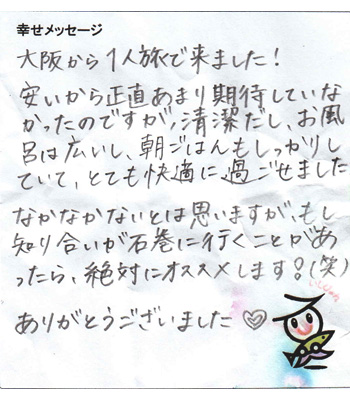 幸せメッセージ
大阪から1人旅で来ました!
安いから正直あまり期待していな
かったのですが、清潔だし、お風
呂は広いし、朝ごはんもしっかりし
ていて、とても快適に過ごせました
なかなかないとは思いますが、もし
知り合いが石巻に行くことがあ
ったら、絶対にオススメします!(笑)
ありがとうございました♡